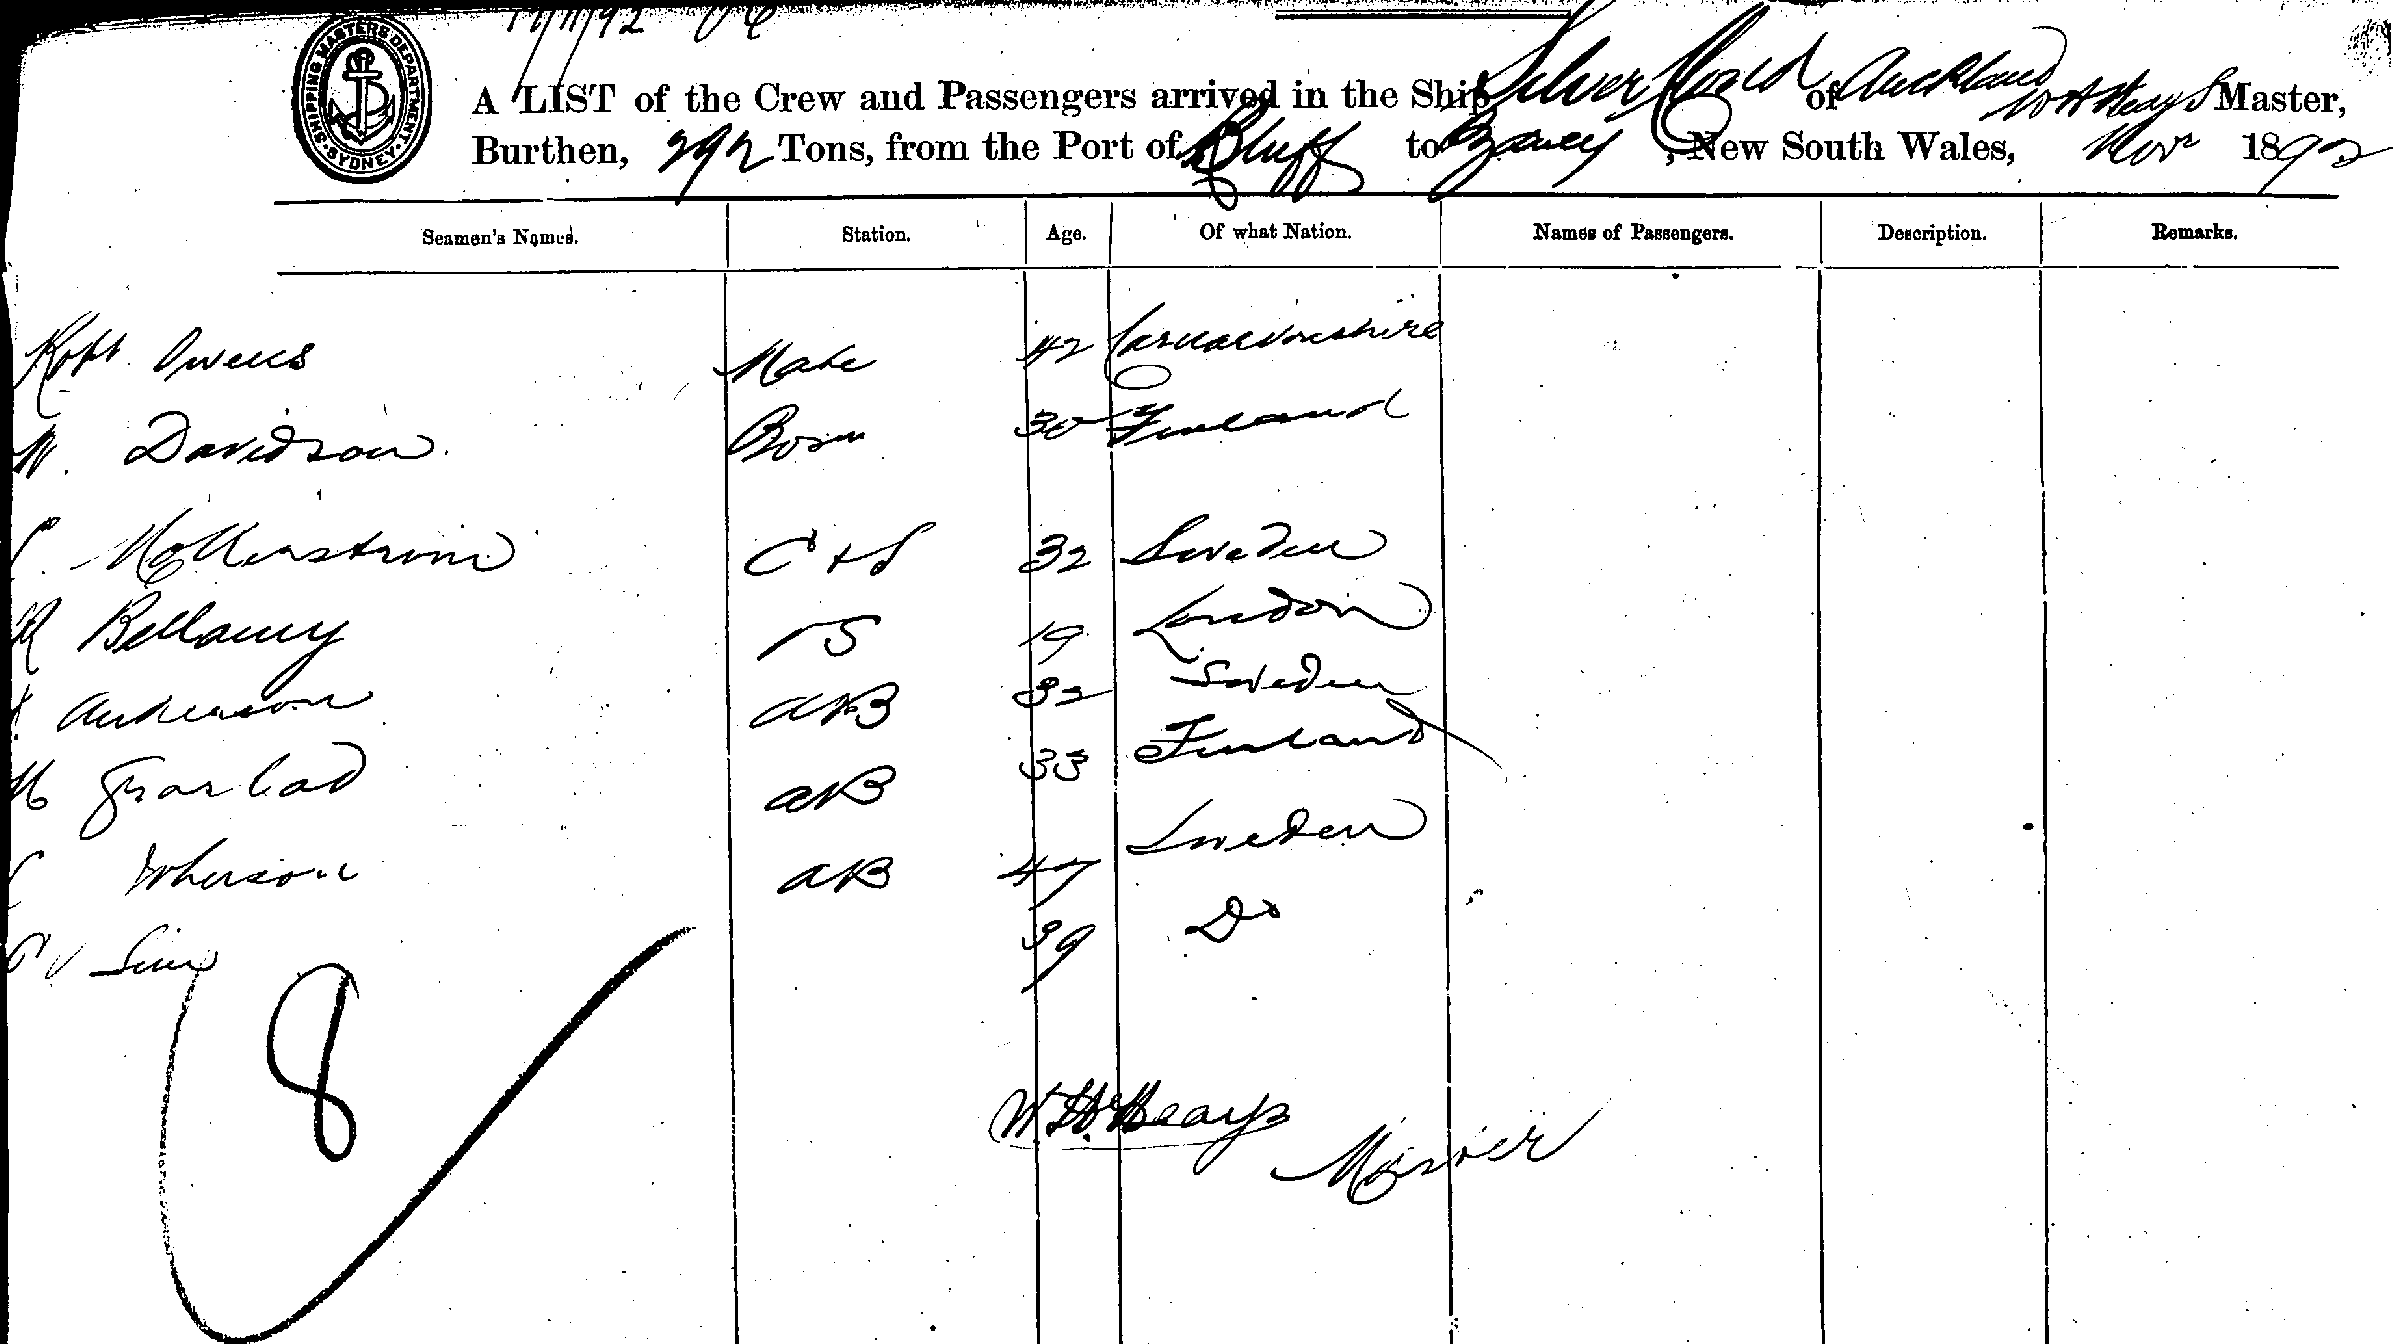 17/11/92
SHIPPING MASTERS DEPARTMENT · SYDNEY ·
A LIST of the Crew and Passengers arrived in the Ship Silver Cloud of Auckland W H Heays Master,
Burthen, 292 Tons, from the Port of Bluff to Sydney, New South Wales, Nov 1892
Seamen's Names. Station. Age. Of what Nation. Names of Passengers. Description. Remarks.
Robt Owens Mate 42 Carnarvonshire
Davidson Bosn 30 Finland
C & S 32 Sweden
Bellamy 19 London
Anderson AB 32 Sweden
AB 33 Finland
Johnson AB 47 Sweden
39 Do
8
W. H. Heays
Master